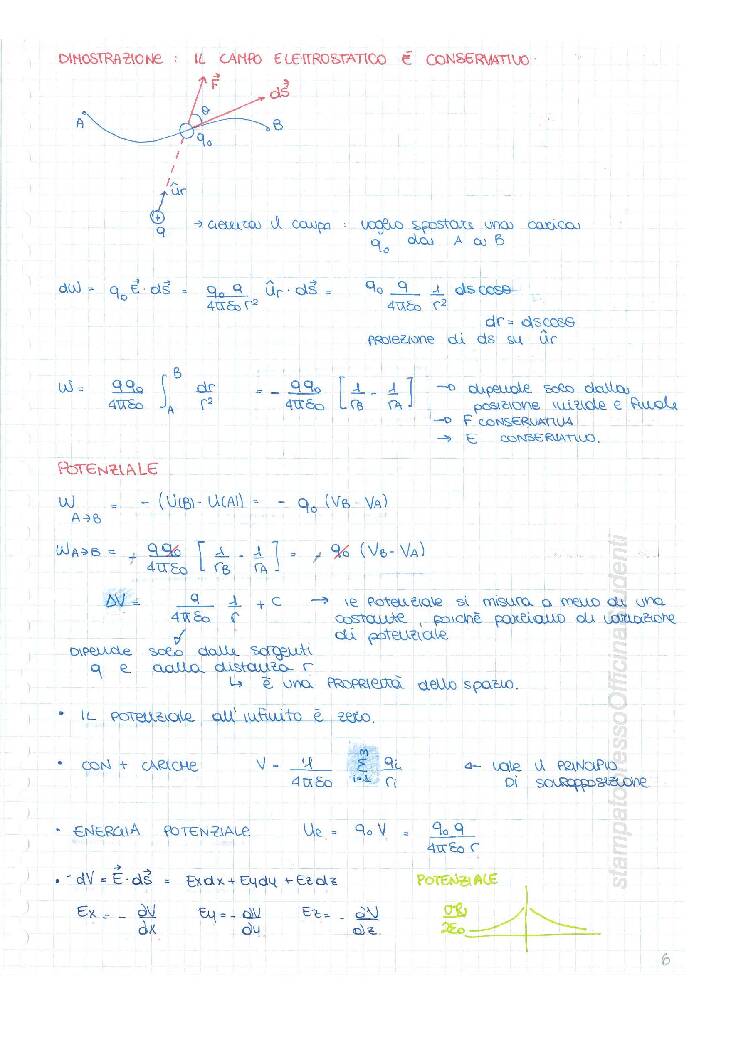 DIMOSTRAZIONE : IL CAMPO ELETTROSTATICO È CONSERVATIVO.
F⃗
ds⃗
θ
A
B
q₀
ûr
+
q
→ genera il campo : voglio spostare una carica
q₀ da A a B
dW = q₀ E⃗ · ds⃗ = q₀ q / 4πε₀ r² ûr · ds⃗ = q₀ q / 4πε₀ 1/r² ds cosθ
dr = ds cosθ
PROIEZIONE di ds su ûr
W = qq₀ / 4πε₀ ∫_A^B dr / r² = - qq₀ / 4πε₀ [ 1/rB - 1/rA ] → dipende solo dalla
posizione iniziale e finale
→ F CONSERVATIVA
→ E CONSERVATIVO.
POTENZIALE
W A→B = - (U(B) - U(A)) = - q₀ (VB - VA)
WA→B = - qq₀ / 4πε₀ [ 1/rB - 1/rA ] = - q₀ (VB - VA)
ΔV = q / 4πε₀ 1/r + C → Il POTENZIALE si misura a meno di una
costante, poichè parliamo di variazione
di potenziale
DIPENDE solo dalle sorgenti
q e dalla distanza r
↳ È una PROPRIETÀ dello spazio.
• IL POTENZIALE all'infinito è zero.
• CON + CARICHE V = 1 / 4πε₀ Σ i=1 qi / ri ← vale il PRINCIPIO
DI SOVRAPPOSIZIONE
• ENERGIA POTENZIALE Ue = q₀ V = q₀ q / 4πε₀ r
• - dV = E⃗ · ds⃗ = Exdx + Eydy + Ezdz
POTENZIALE
Ex = - ∂V/∂x Ey = - ∂V/∂y Ez = - ∂V/∂z
σR / 2ε₀
stampatopressoOfficinaStudenti
6